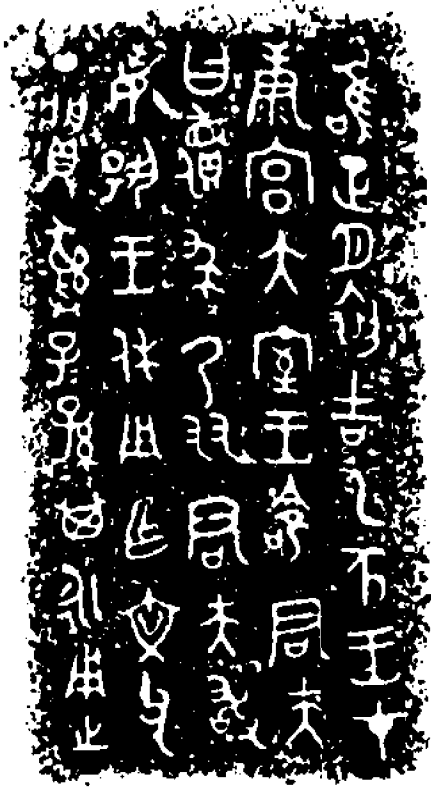 隹正月初吉乙亥王才
康宮大室王命君夫
曰儥求乃友君夫敢
揚王休用乍文父
丁䵼彝子孫其永用之